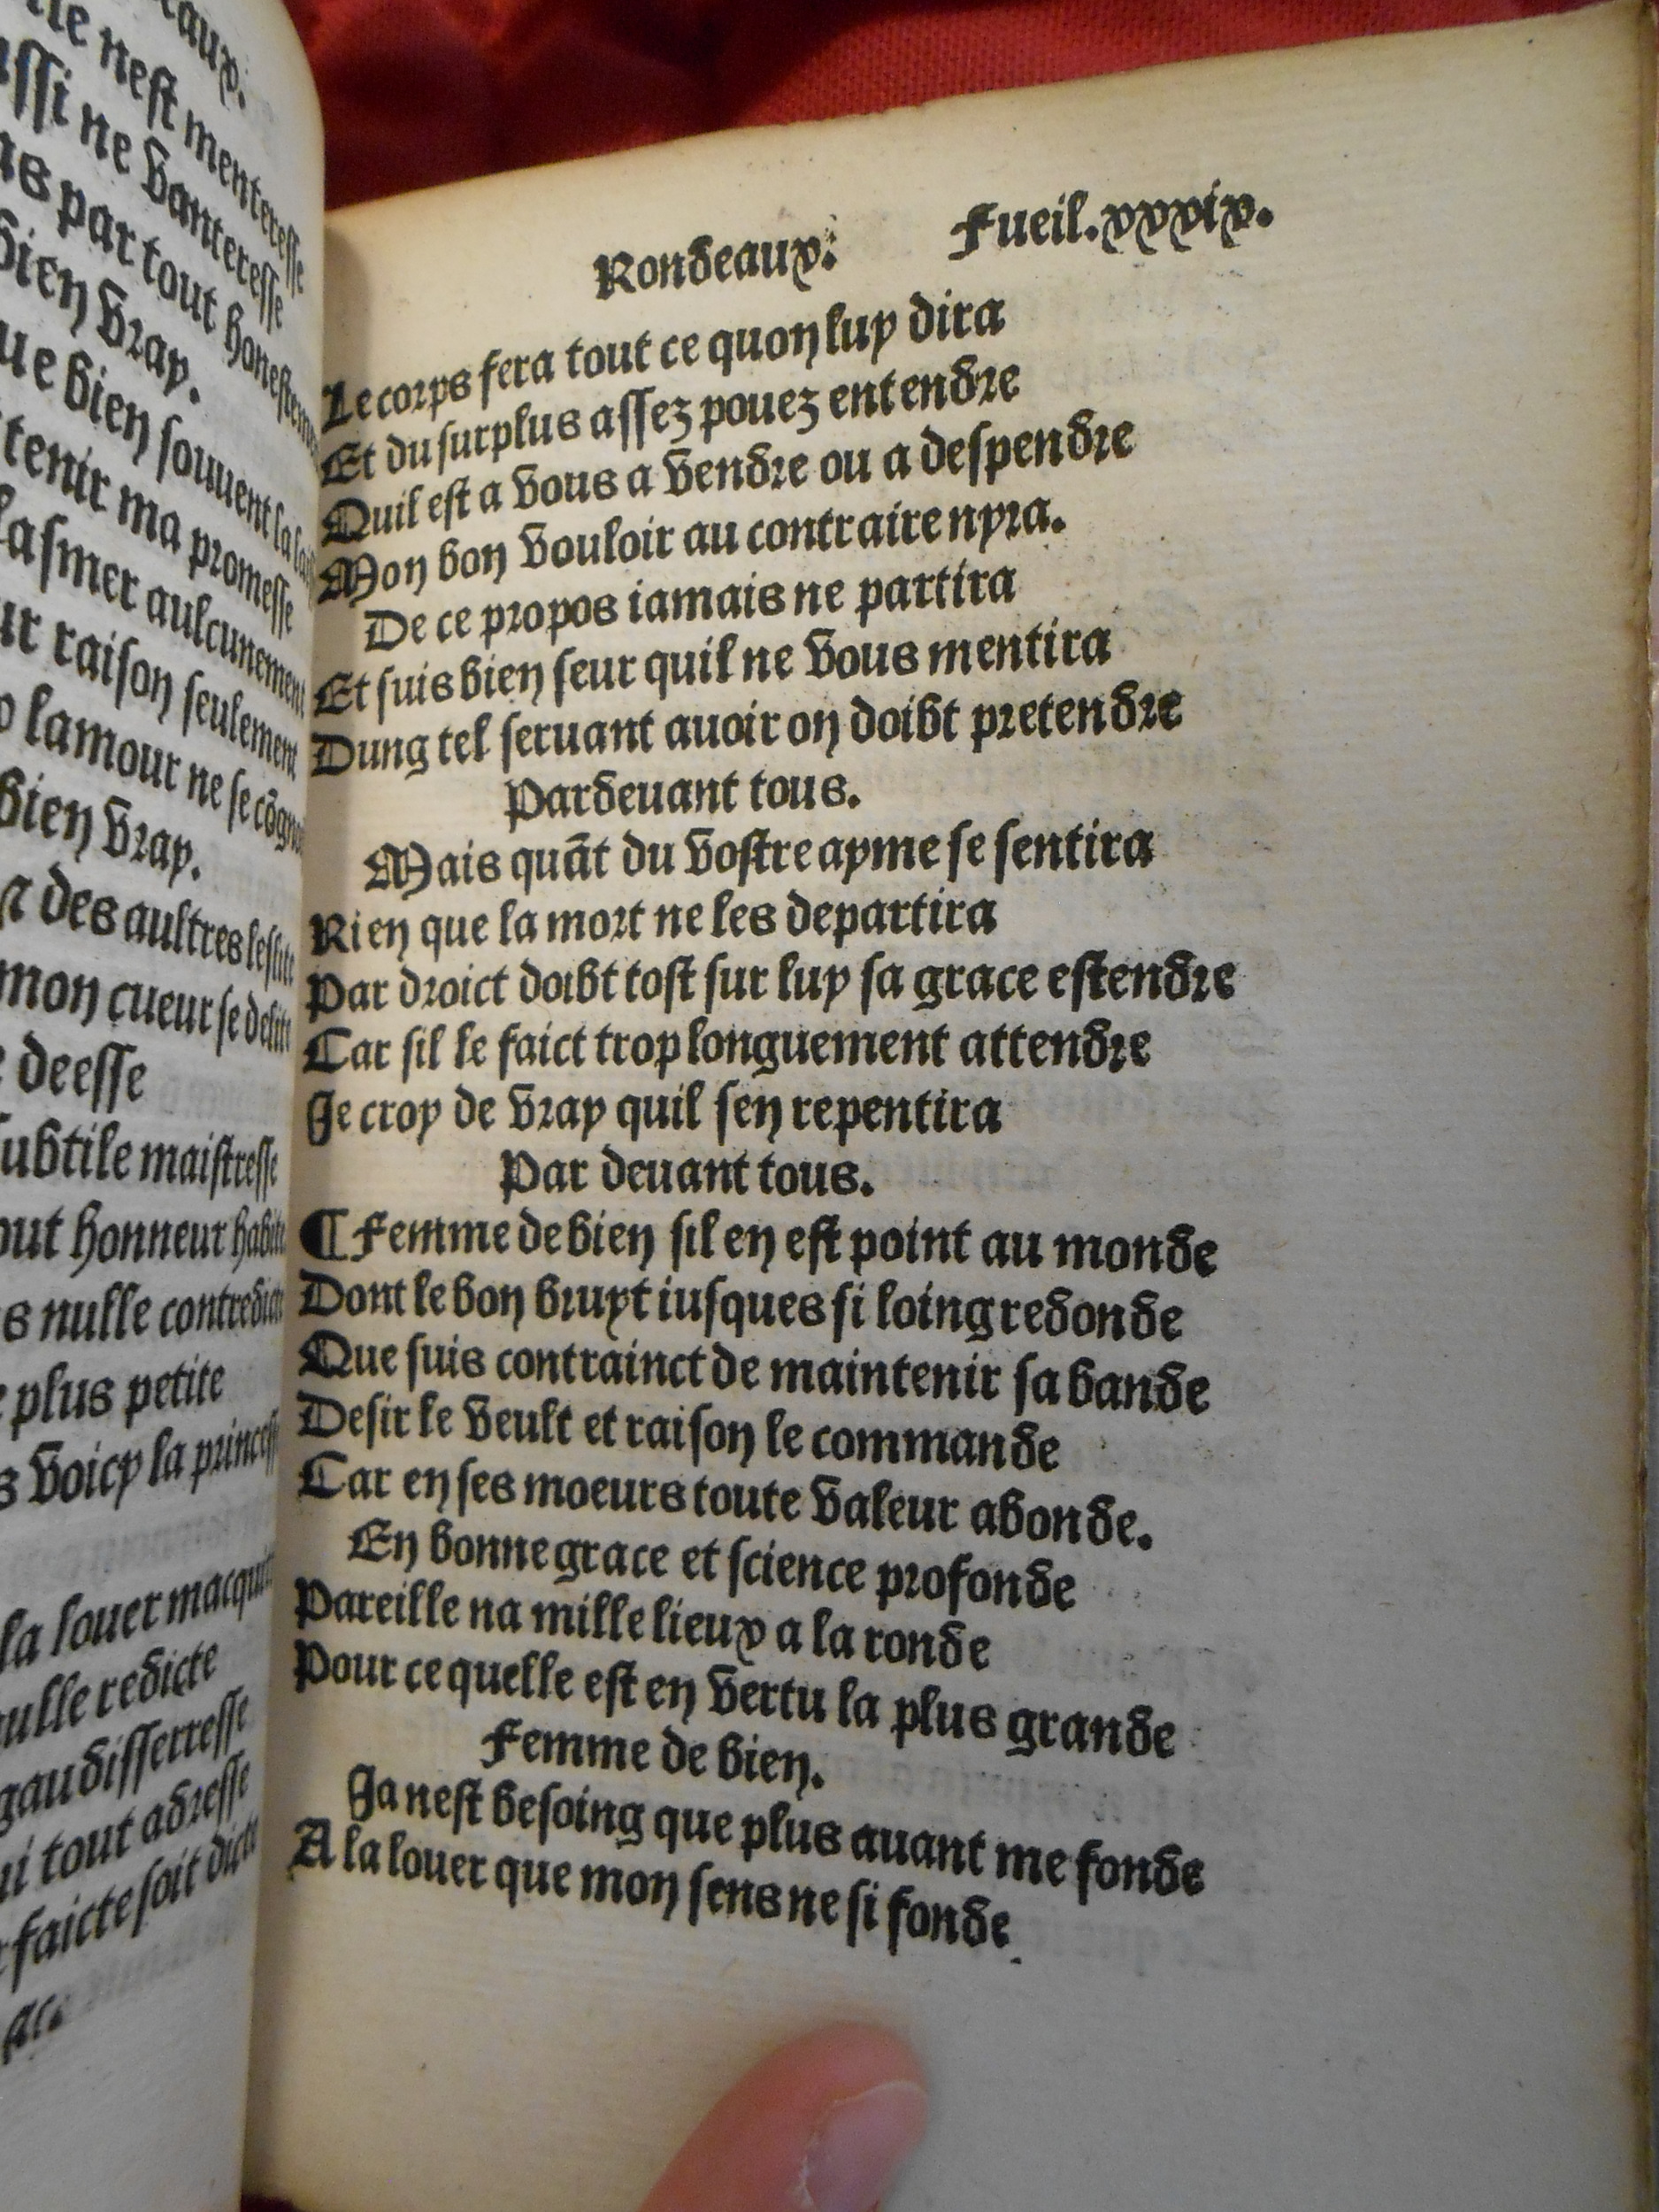 aux.
lle nest menteresse
ussi ne vanteresse
as par tout honestem
bien vray.
ue bien souuent la
tenir ma promesse
lasmer aulcunement
ur raison seulement
lamour ne se cōgno
bien vray.
des aultres leslite
mon cueur se delite
deesse
subtile maistresse
out honneur habite
s nulle contredicte
plus petite
voicy la princesse
la louer macquitte
nulle redicte
gaudisserresse
ui tout adresse
faicte soit dicte
Rondeaux. Fueil.xxxix.
Le corps fera tout ce quon luy dira
Et du surplus assez pouez entendre
Quil est a vous a vendre ou a despendre
Mon bon vouloir au contraire nyra.
De ce propos iamais ne partira
Et suis bien seur quil ne vous mentira
Dung tel seruant auoir on doibt pretendre
Pardeuant tous.
Mais quāt du vostre ayme se sentira
Rien que la mort ne les departira
Par droict doibt tost sur luy sa grace estendre
Car sil le faict trop longuement attendre
Je croy de vray quil sen repentira
Par deuant tous.
¶ Femme de bien sil en est point au monde
Dont le bon bruyt iusques si loing redonde
Que suis contrainct de maintenir sa bande
Desir le veult et raison le commande
Car en ses moeurs toute valeur abonde.
En bonne grace et science profonde
Pareille na mille lieux a la ronde
Pour ce quelle est en vertu la plus grande
Femme de bien.
Ja nest besoing que plus auant me fonde
A la louer que mon sens ne si fonde